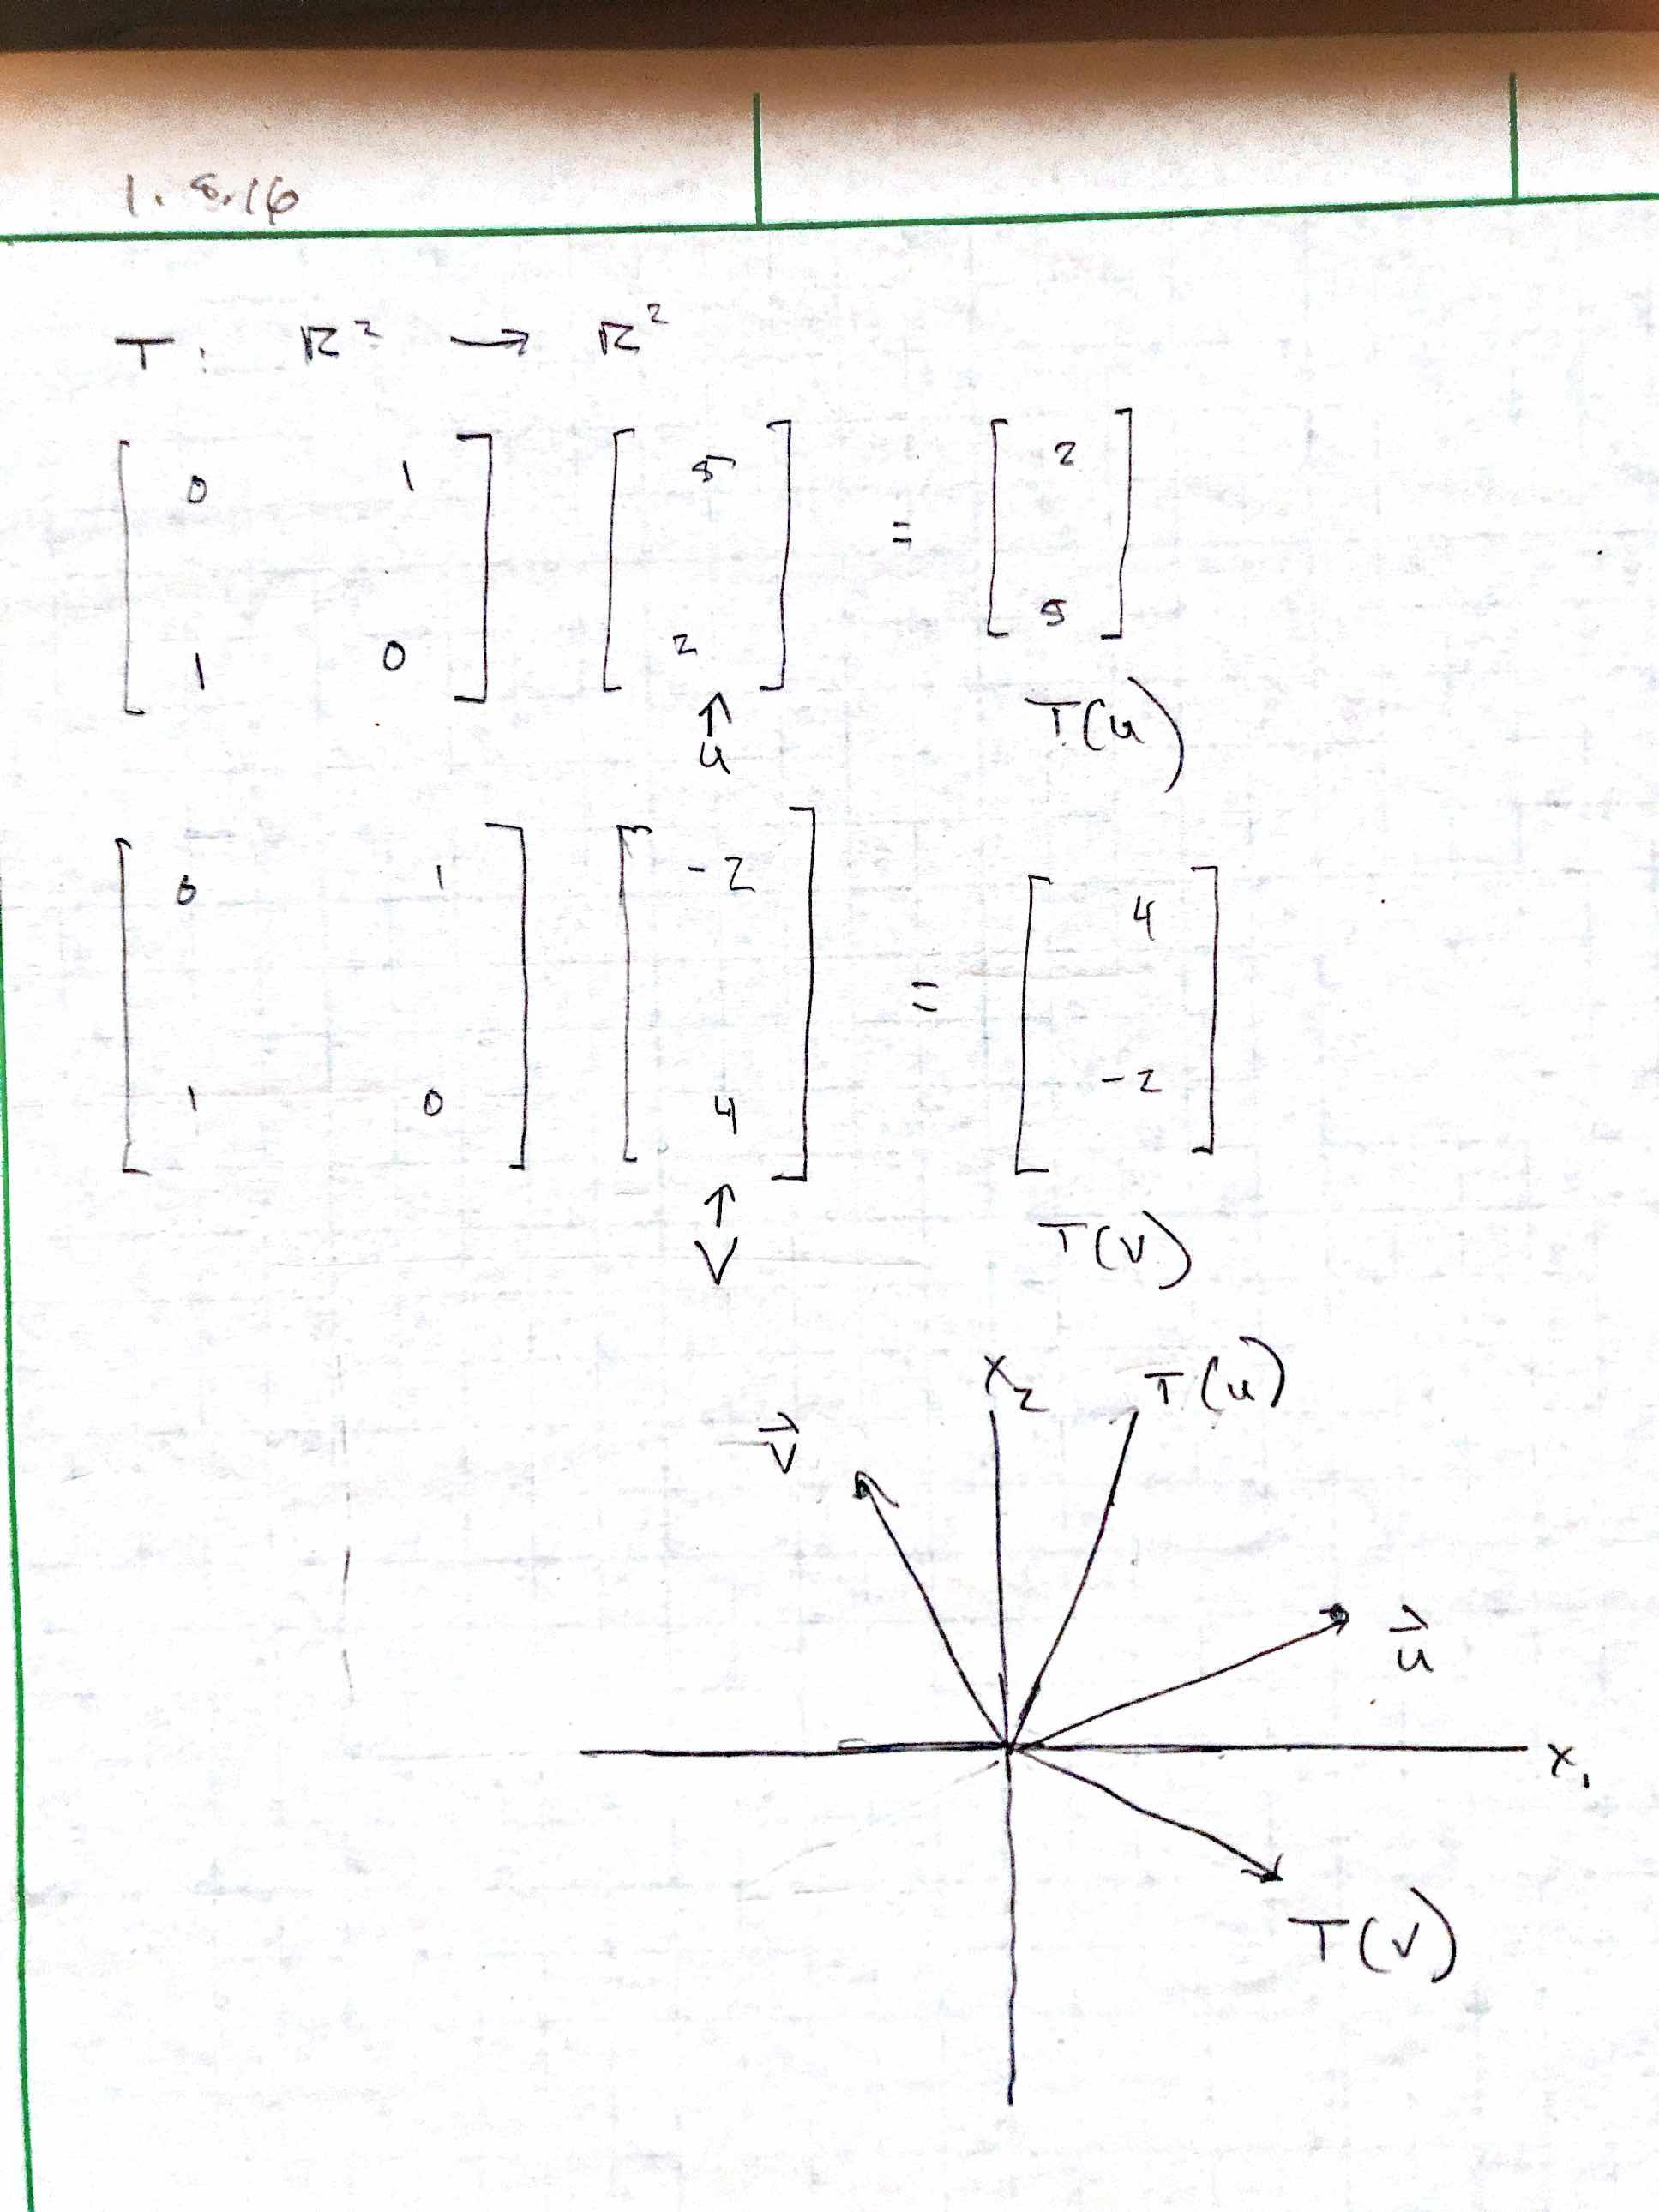 1.8.16
T: ℝ² → ℝ²
[ 0 1 ] [ 5 ] = [ 2 ]
[ 1 0 ] [ 2 ] [ 5 ]
↑
u T(u)
[ 0 1 ] [ -2 ] = [ 4 ]
[ 1 0 ] [ 4 ] [ -2 ]
↑
V T(v)
x₂ T(u)
v⃗
u⃗
x₁
T(v)